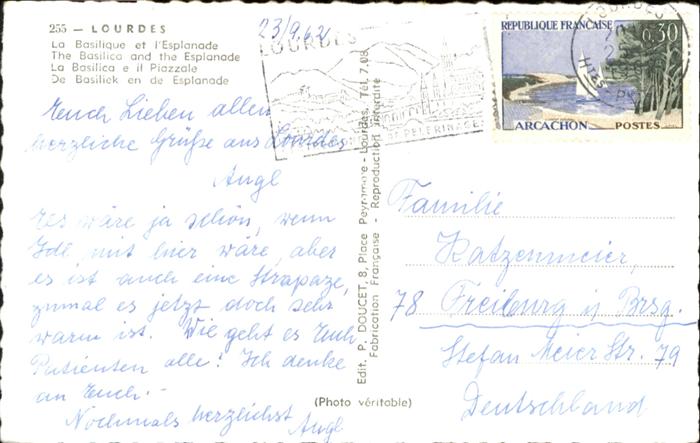 255 — LOURDES
La Basilique et l'Esplanade
The Basilica and the Esplanade
La Basilica e il Piazzale
De Basiliek en de Esplanade
23/9.62
LOURDES
PELERINAGES
REPUBLIQUE FRANÇAISE
0,30
ARCACHON POSTES
LOURDES
Euch Lieben allen
herzliche Grüße aus Lourdes
Angl
Es wäre ja schön, wenn
Ihr mit hier wäre, aber
es ist auch eine Strapaze,
zumal es jetzt doch sehr
warm ist. Wie geht es Euch
Patienten alle? Ich denke
an Euch.-
Nochmals herzlichst Angl
Edit. P. DOUCET, 8, Place Peyramale - Lourdes, Tél. 7.08
Fabrication Française - Reproduction interdite
(Photo véritable)
Familie
Katzenmeier,
78 Freiburg i. Brsg.
Stefan Meier Str. 79
Deutschland